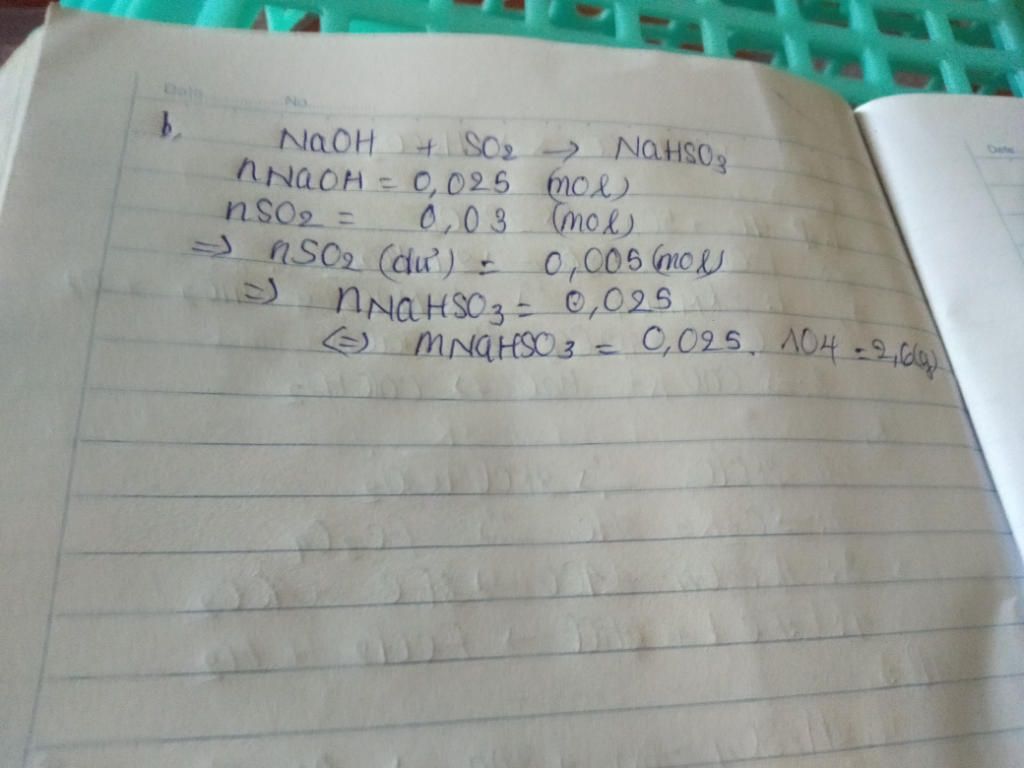 Date No.
b, NaOH + SO2 → NaHSO3
nNaOH = 0,025 (mol)
nSO2 = 0,03 (mol)
=> nSO2 (dư) = 0,005 (mol)
=> nNaHSO3 = 0,025
<=> mNaHSO3 = 0,025. 104 = 2,6(g)
Date